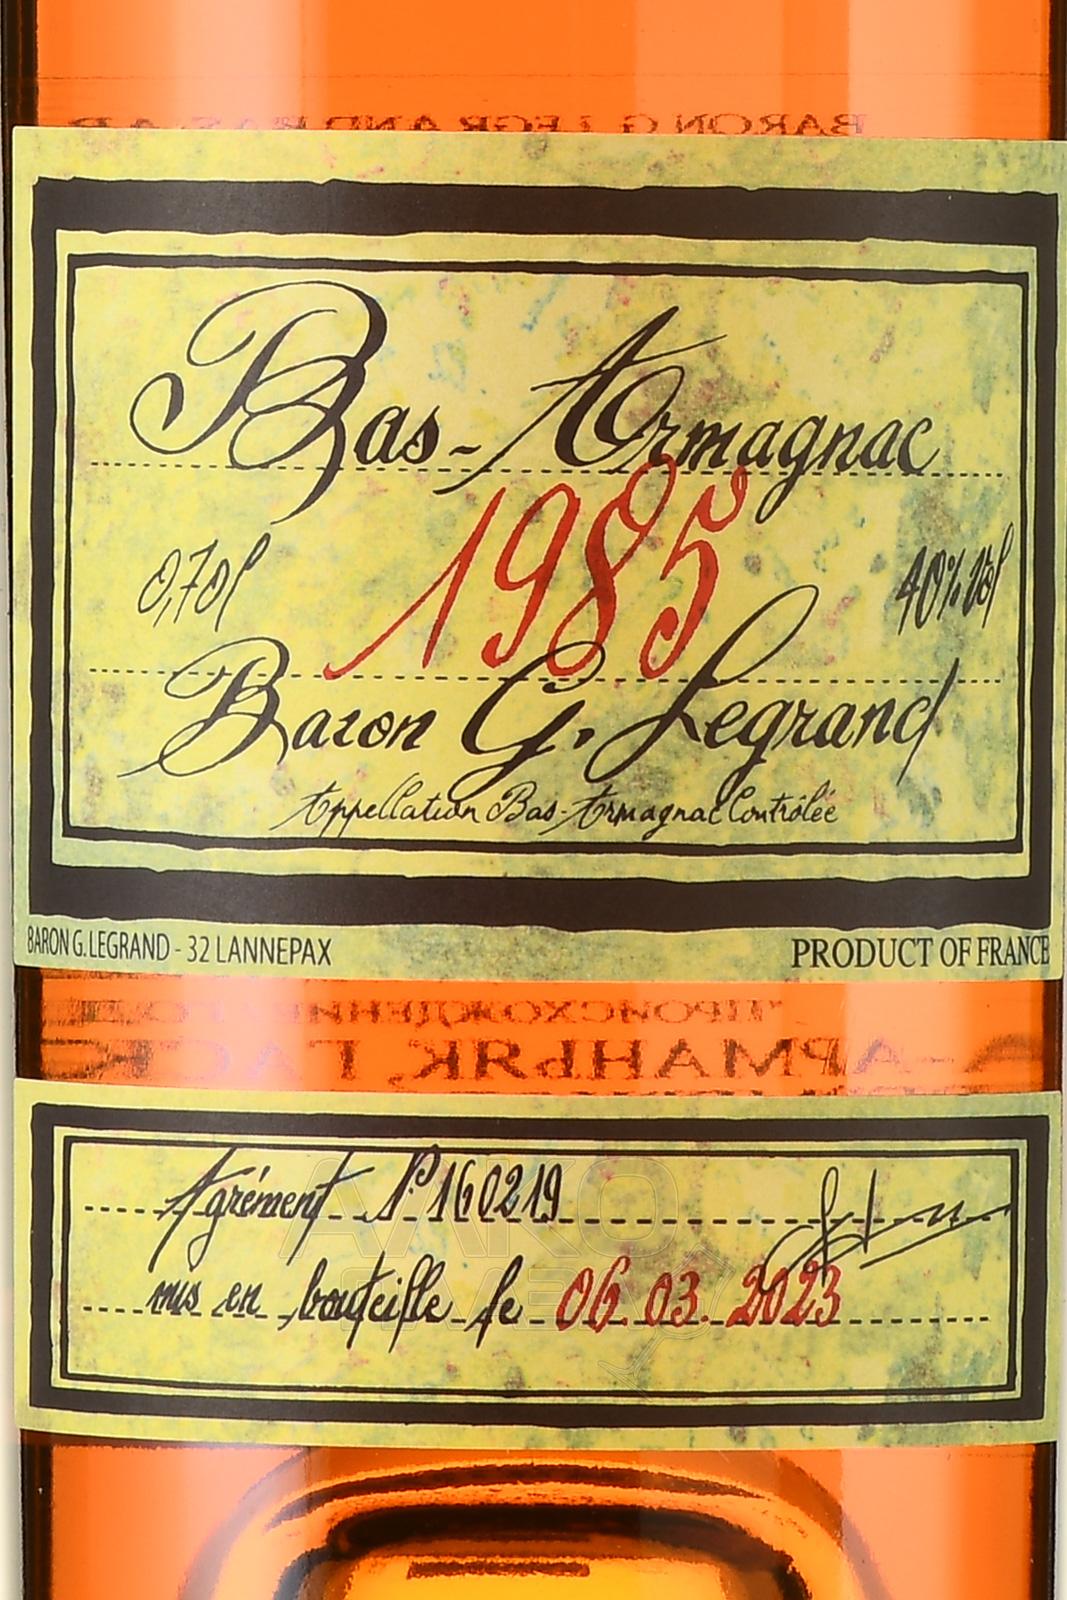 BARON G. LEGRAND BAS AR
Bas-Armagnac
1985
0,70l
40% Vol
Baron G. Legrand
Appellation Bas-Armagnac Contrôlée
BARON G. LEGRAND - 32 LANNEPAX
PRODUCT OF FRANCE
-АРМАНЬЯК, ГАСК
Agrément N° 160219
mis en bouteille le 06.03.2023